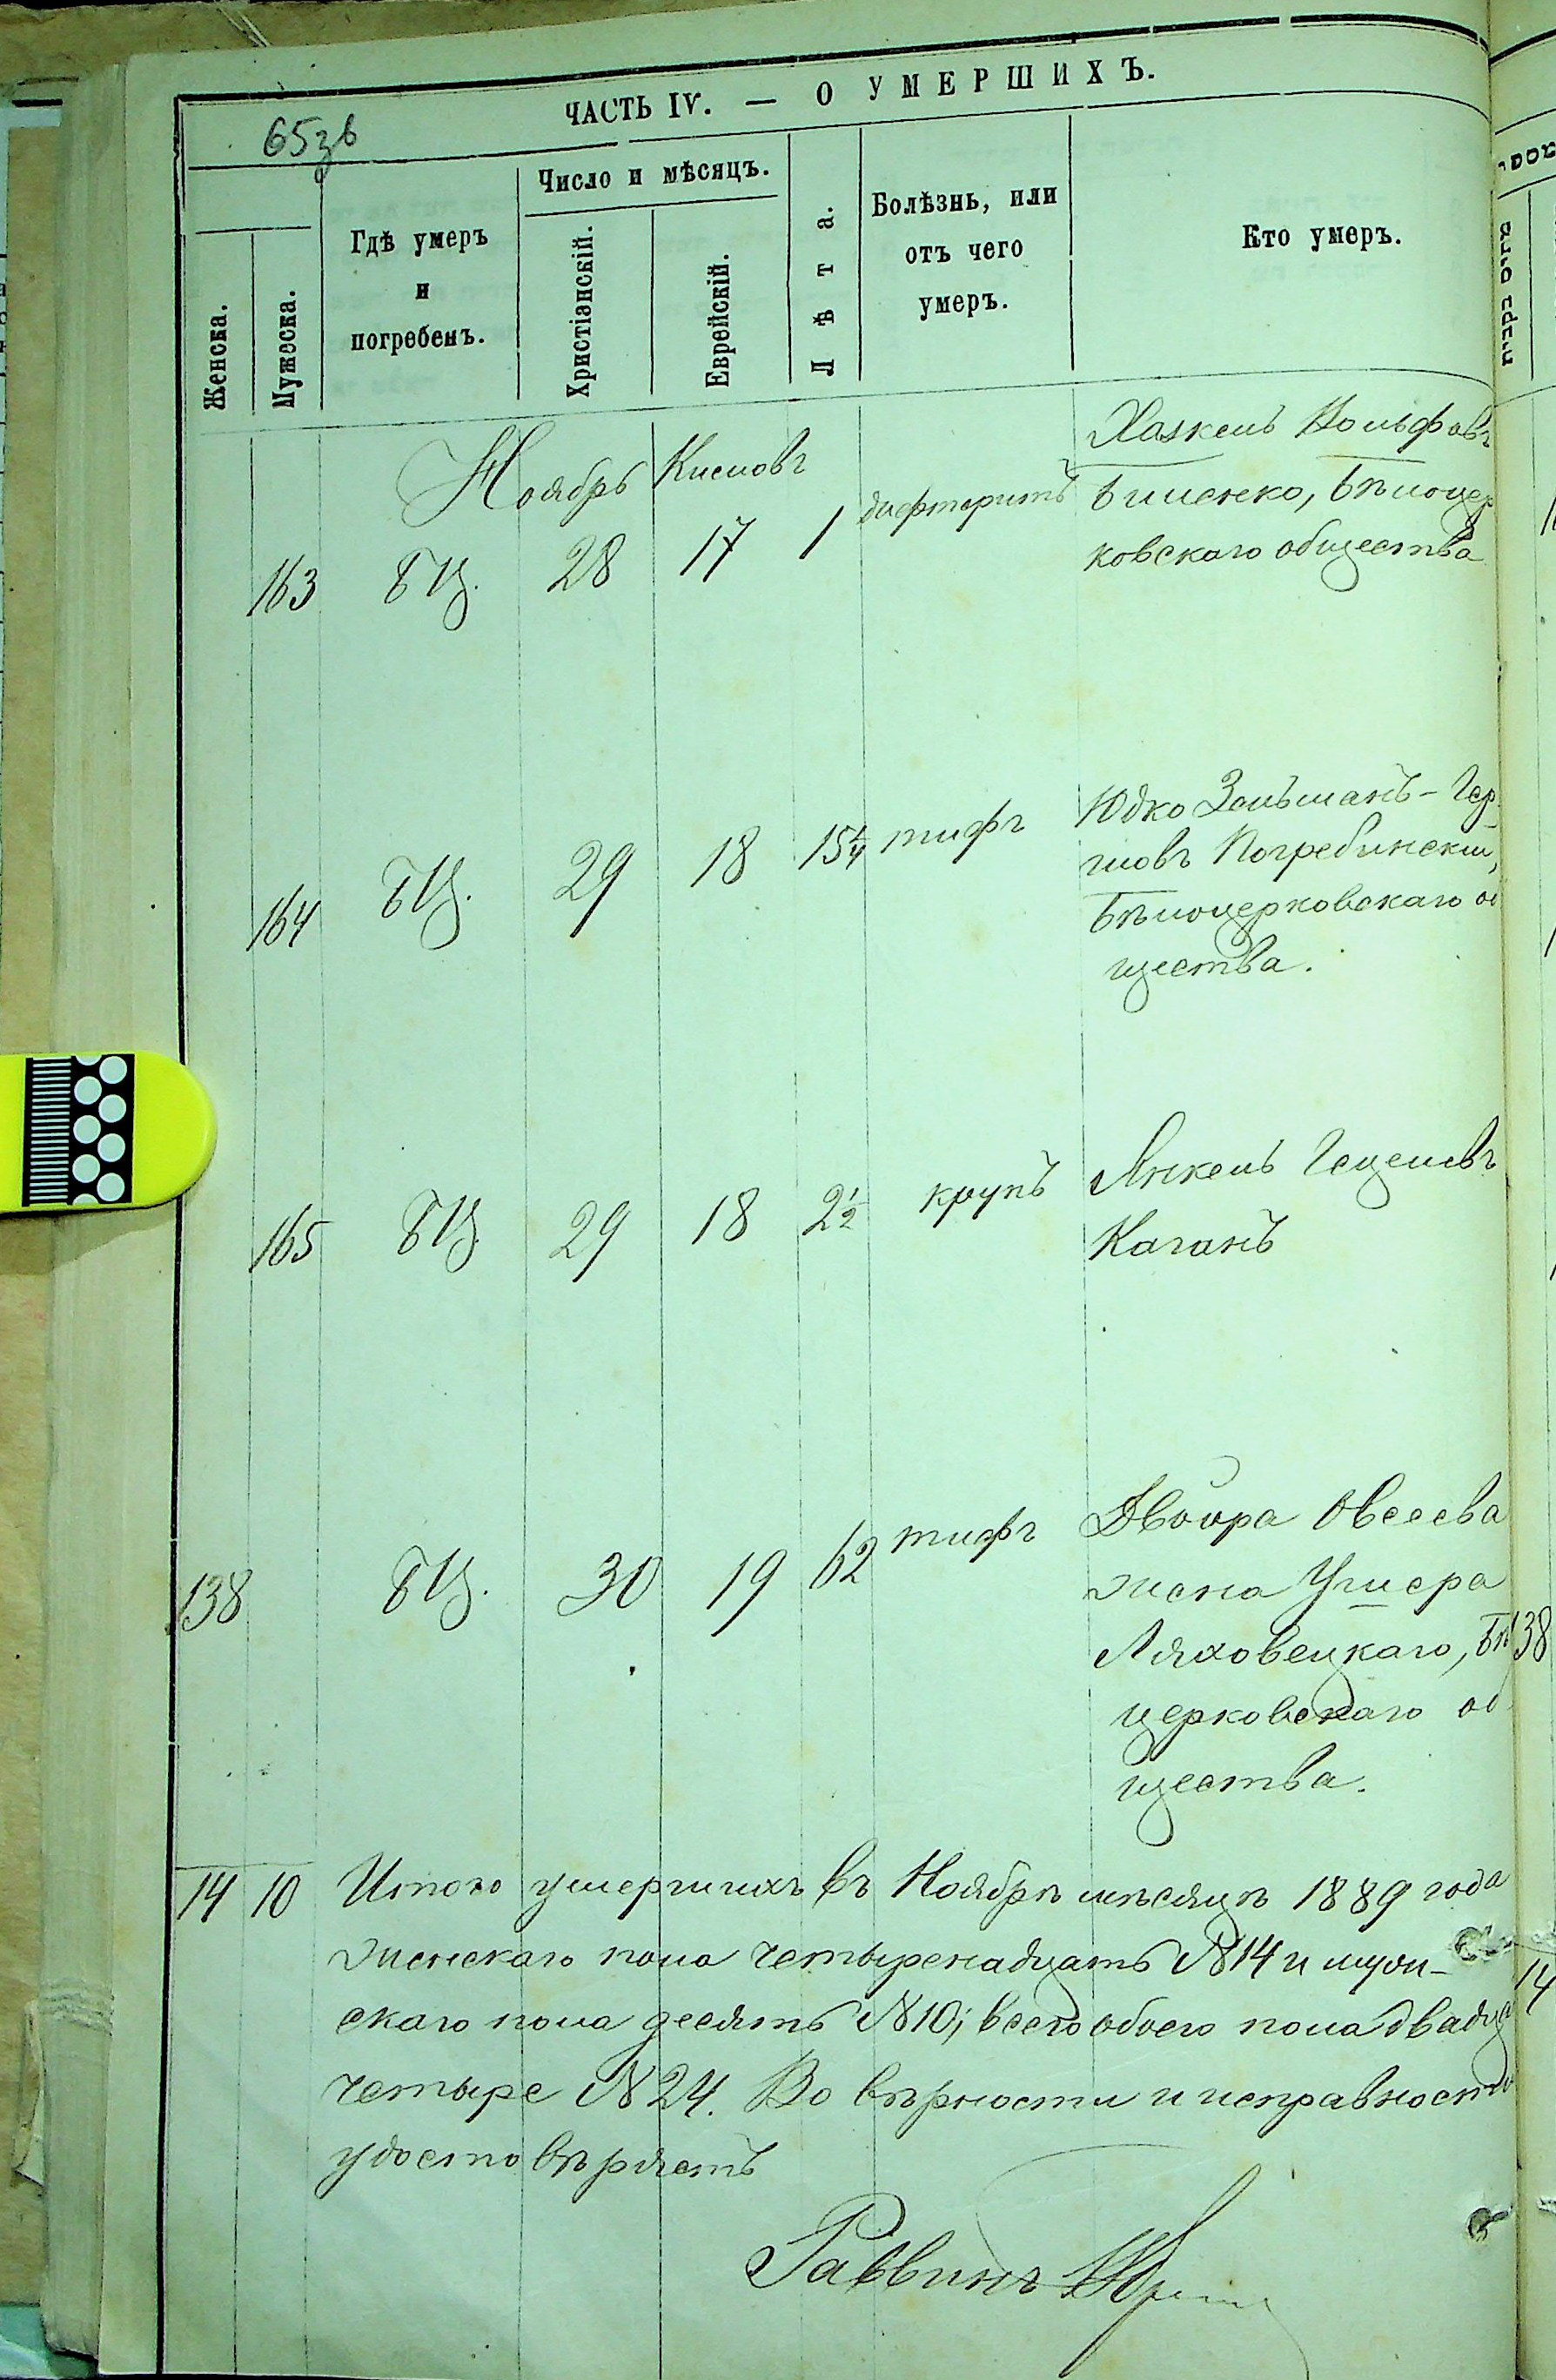 65зв
ЧАСТЬ IV. — О УМЕРШИХЪ.
Женска.
Мужеска.
Гдѣ умеръ
и
погребенъ.
Число и мѣсяцъ.
Христіэнскій.
Еврейскій.
Лѣта.
Болѣзнь, или
отъ чего
умеръ.
Кто умеръ.
Ноябрь Кислевъ
163 БЦ. 28 17 1 дифтеритъ
Хаскель Вольфовъ
Биленко, Бѣлоцер
ковскаго общества
164 БЦ. 29 18 15¼ тифъ
Юдко Зельманъ-Гер
шовъ Погребинскій,
Бѣлоцерковскаго об
щества.
165 БЦ. 29 18 2½ крупъ
Янкель Гецелевъ
Каганъ
138 БЦ. 30 19 62 тифъ
Двойра Овсеева
жена Ушера
Ляховецкаго, Бѣ
церковскаго об
щества.
14 10 Итого умершихъ въ Ноябрѣ мѣсяцѣ 1889 года
женскаго пола четыренадцать №14 и муж-
скаго пола десять №10; всего обоего пола двадца
четыре №24. Во вѣрности и исправности
удостовѣряетъ
Раввинъ
138
14